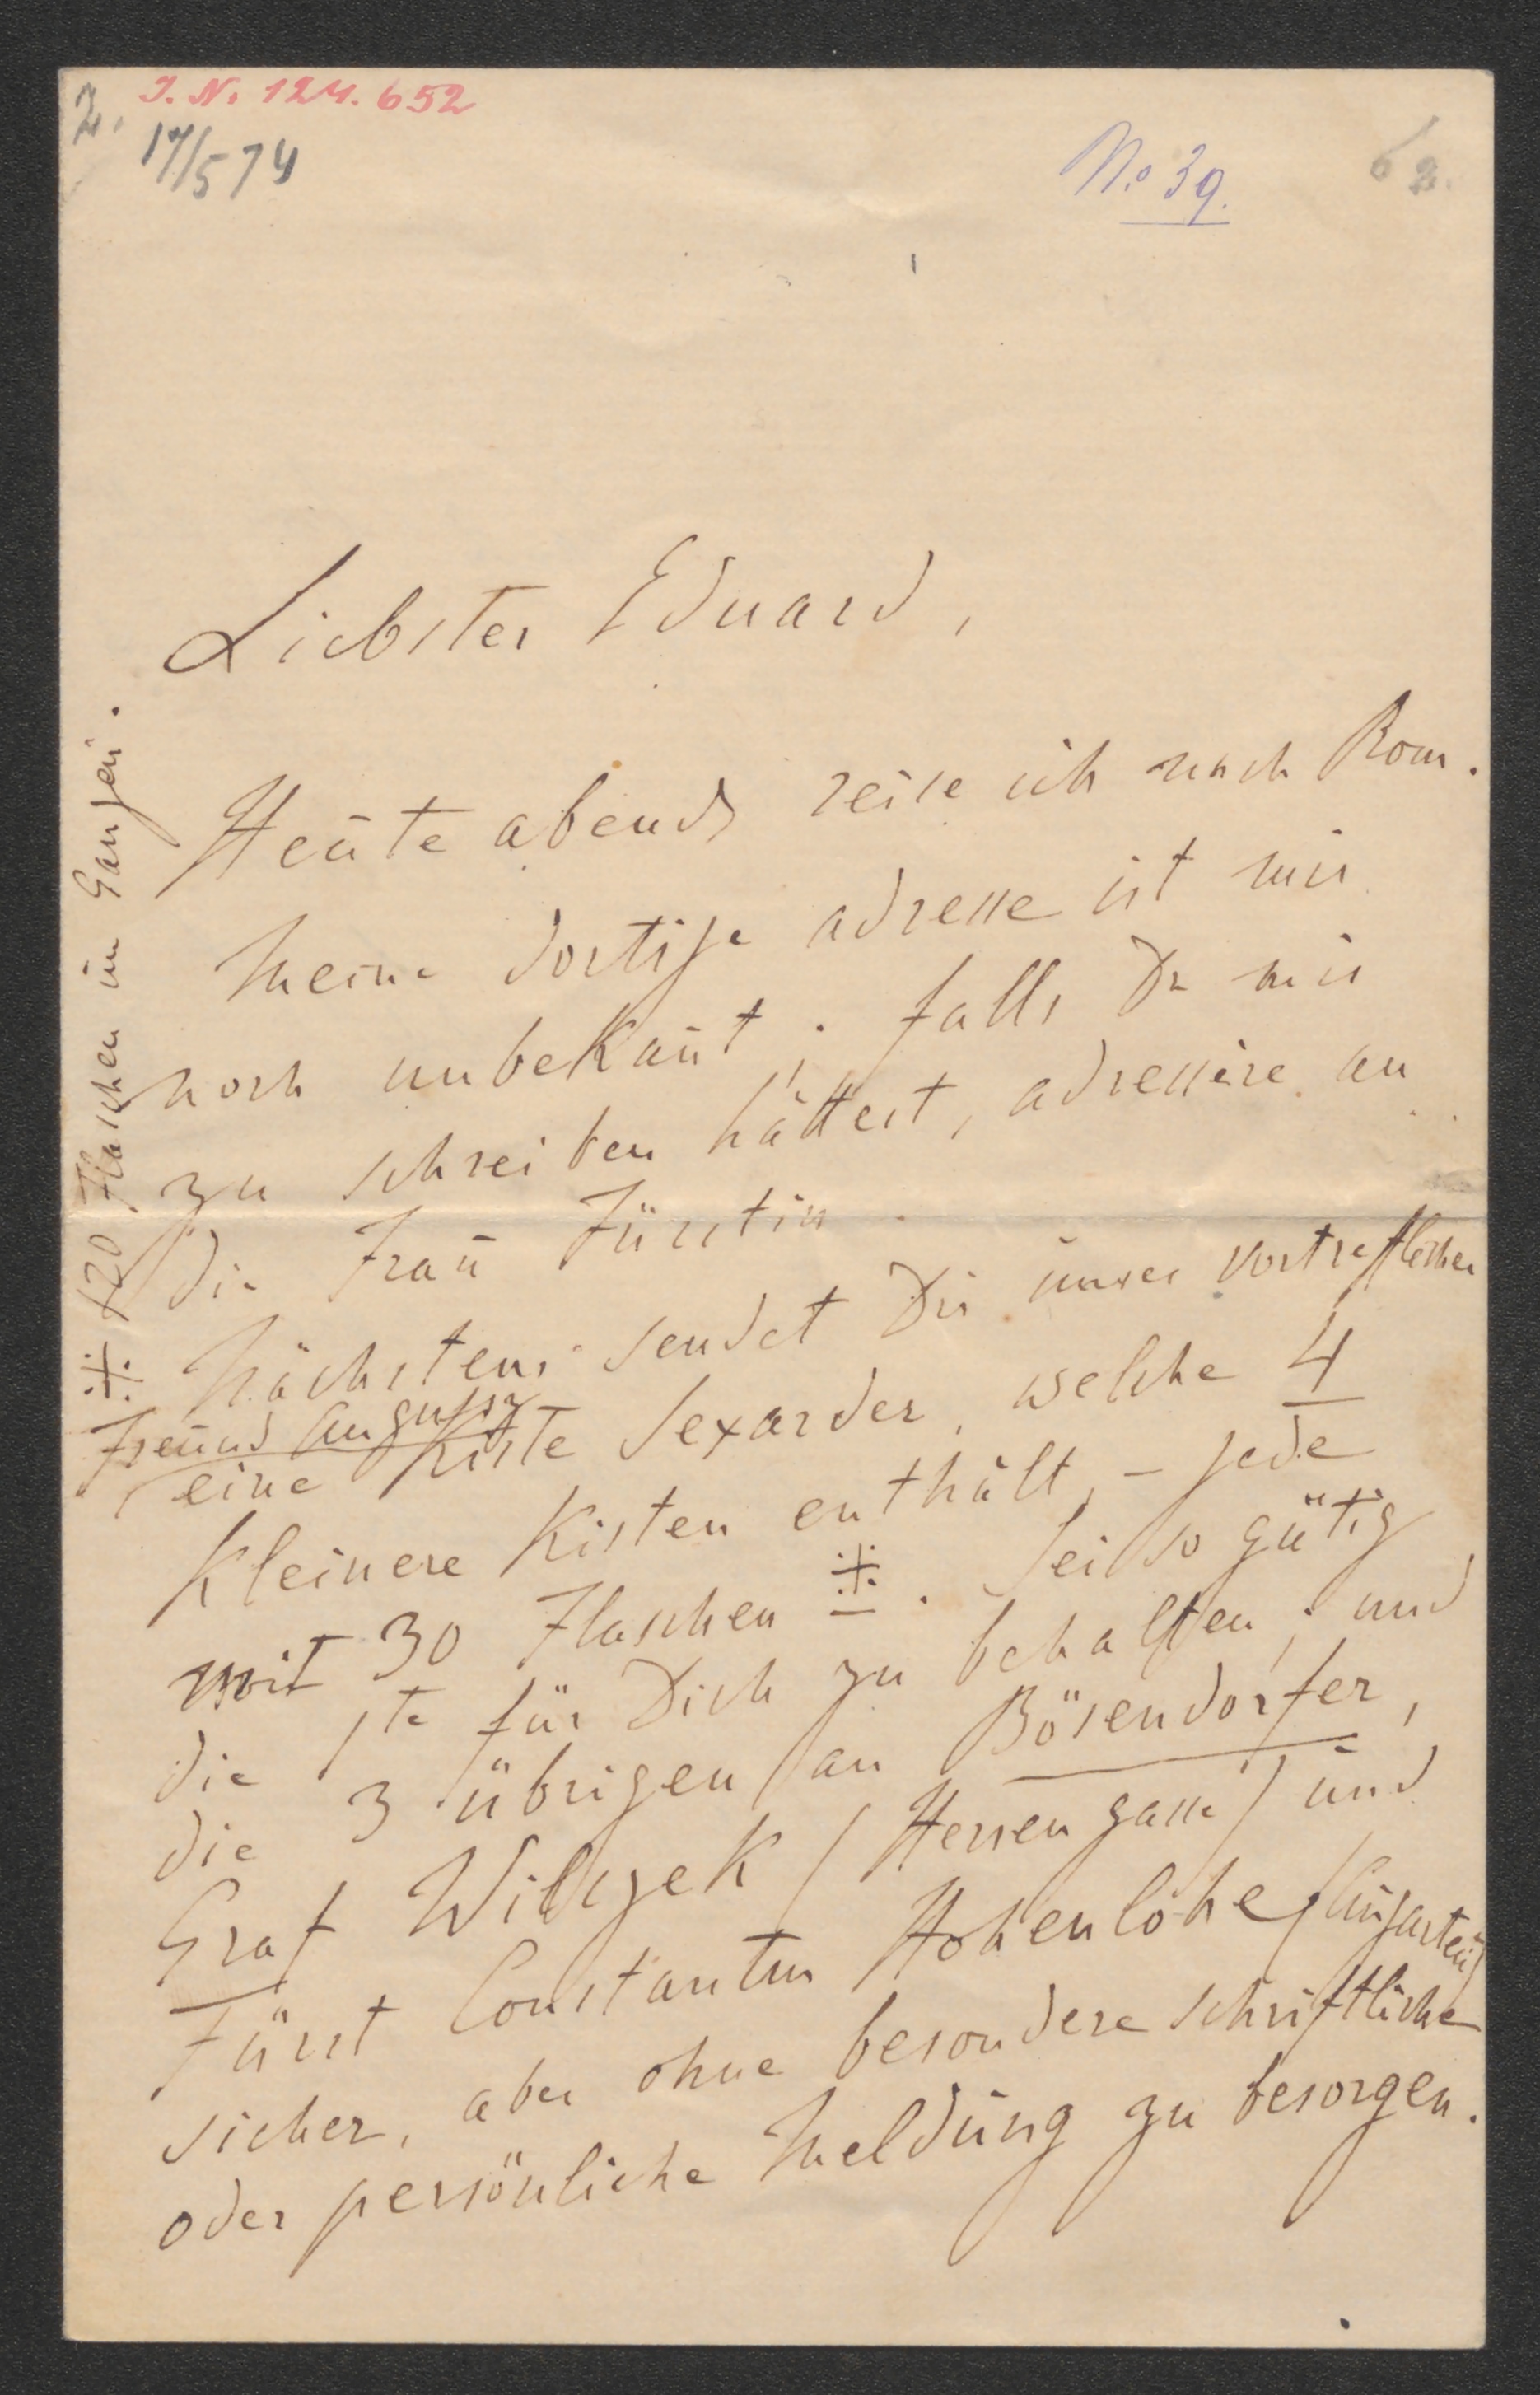 2. I. N. 124.652
17/5 74
No 39.
Liebster Eduard,
Heute abends reise ich nach Rom.
Meine dortige adresse ist mir
noch unbekan̄t; falls Du mir
zu schreiben hättest, adressire an
die Frau Fürstin.
Nächstens sendet Dir unser vortrefflicher
Freund Augusz
eine Kiste Sexarder, welche 4
kleinere Kisten enthält, – jede
mit 30 Flaschen ※. Sei so gütig,
die 1te für Dich zu behalten; und
die 3 übrigen an Bösendorfer,
Graf Wilczek (Herrengasse) und
Fürst Constantin Hohenlohe (Augarten)
sicher, aber ohne besondere schriftliche
oder persönliche Meldung zu besorgen.
※ 120 Flaschen im Ganzen.